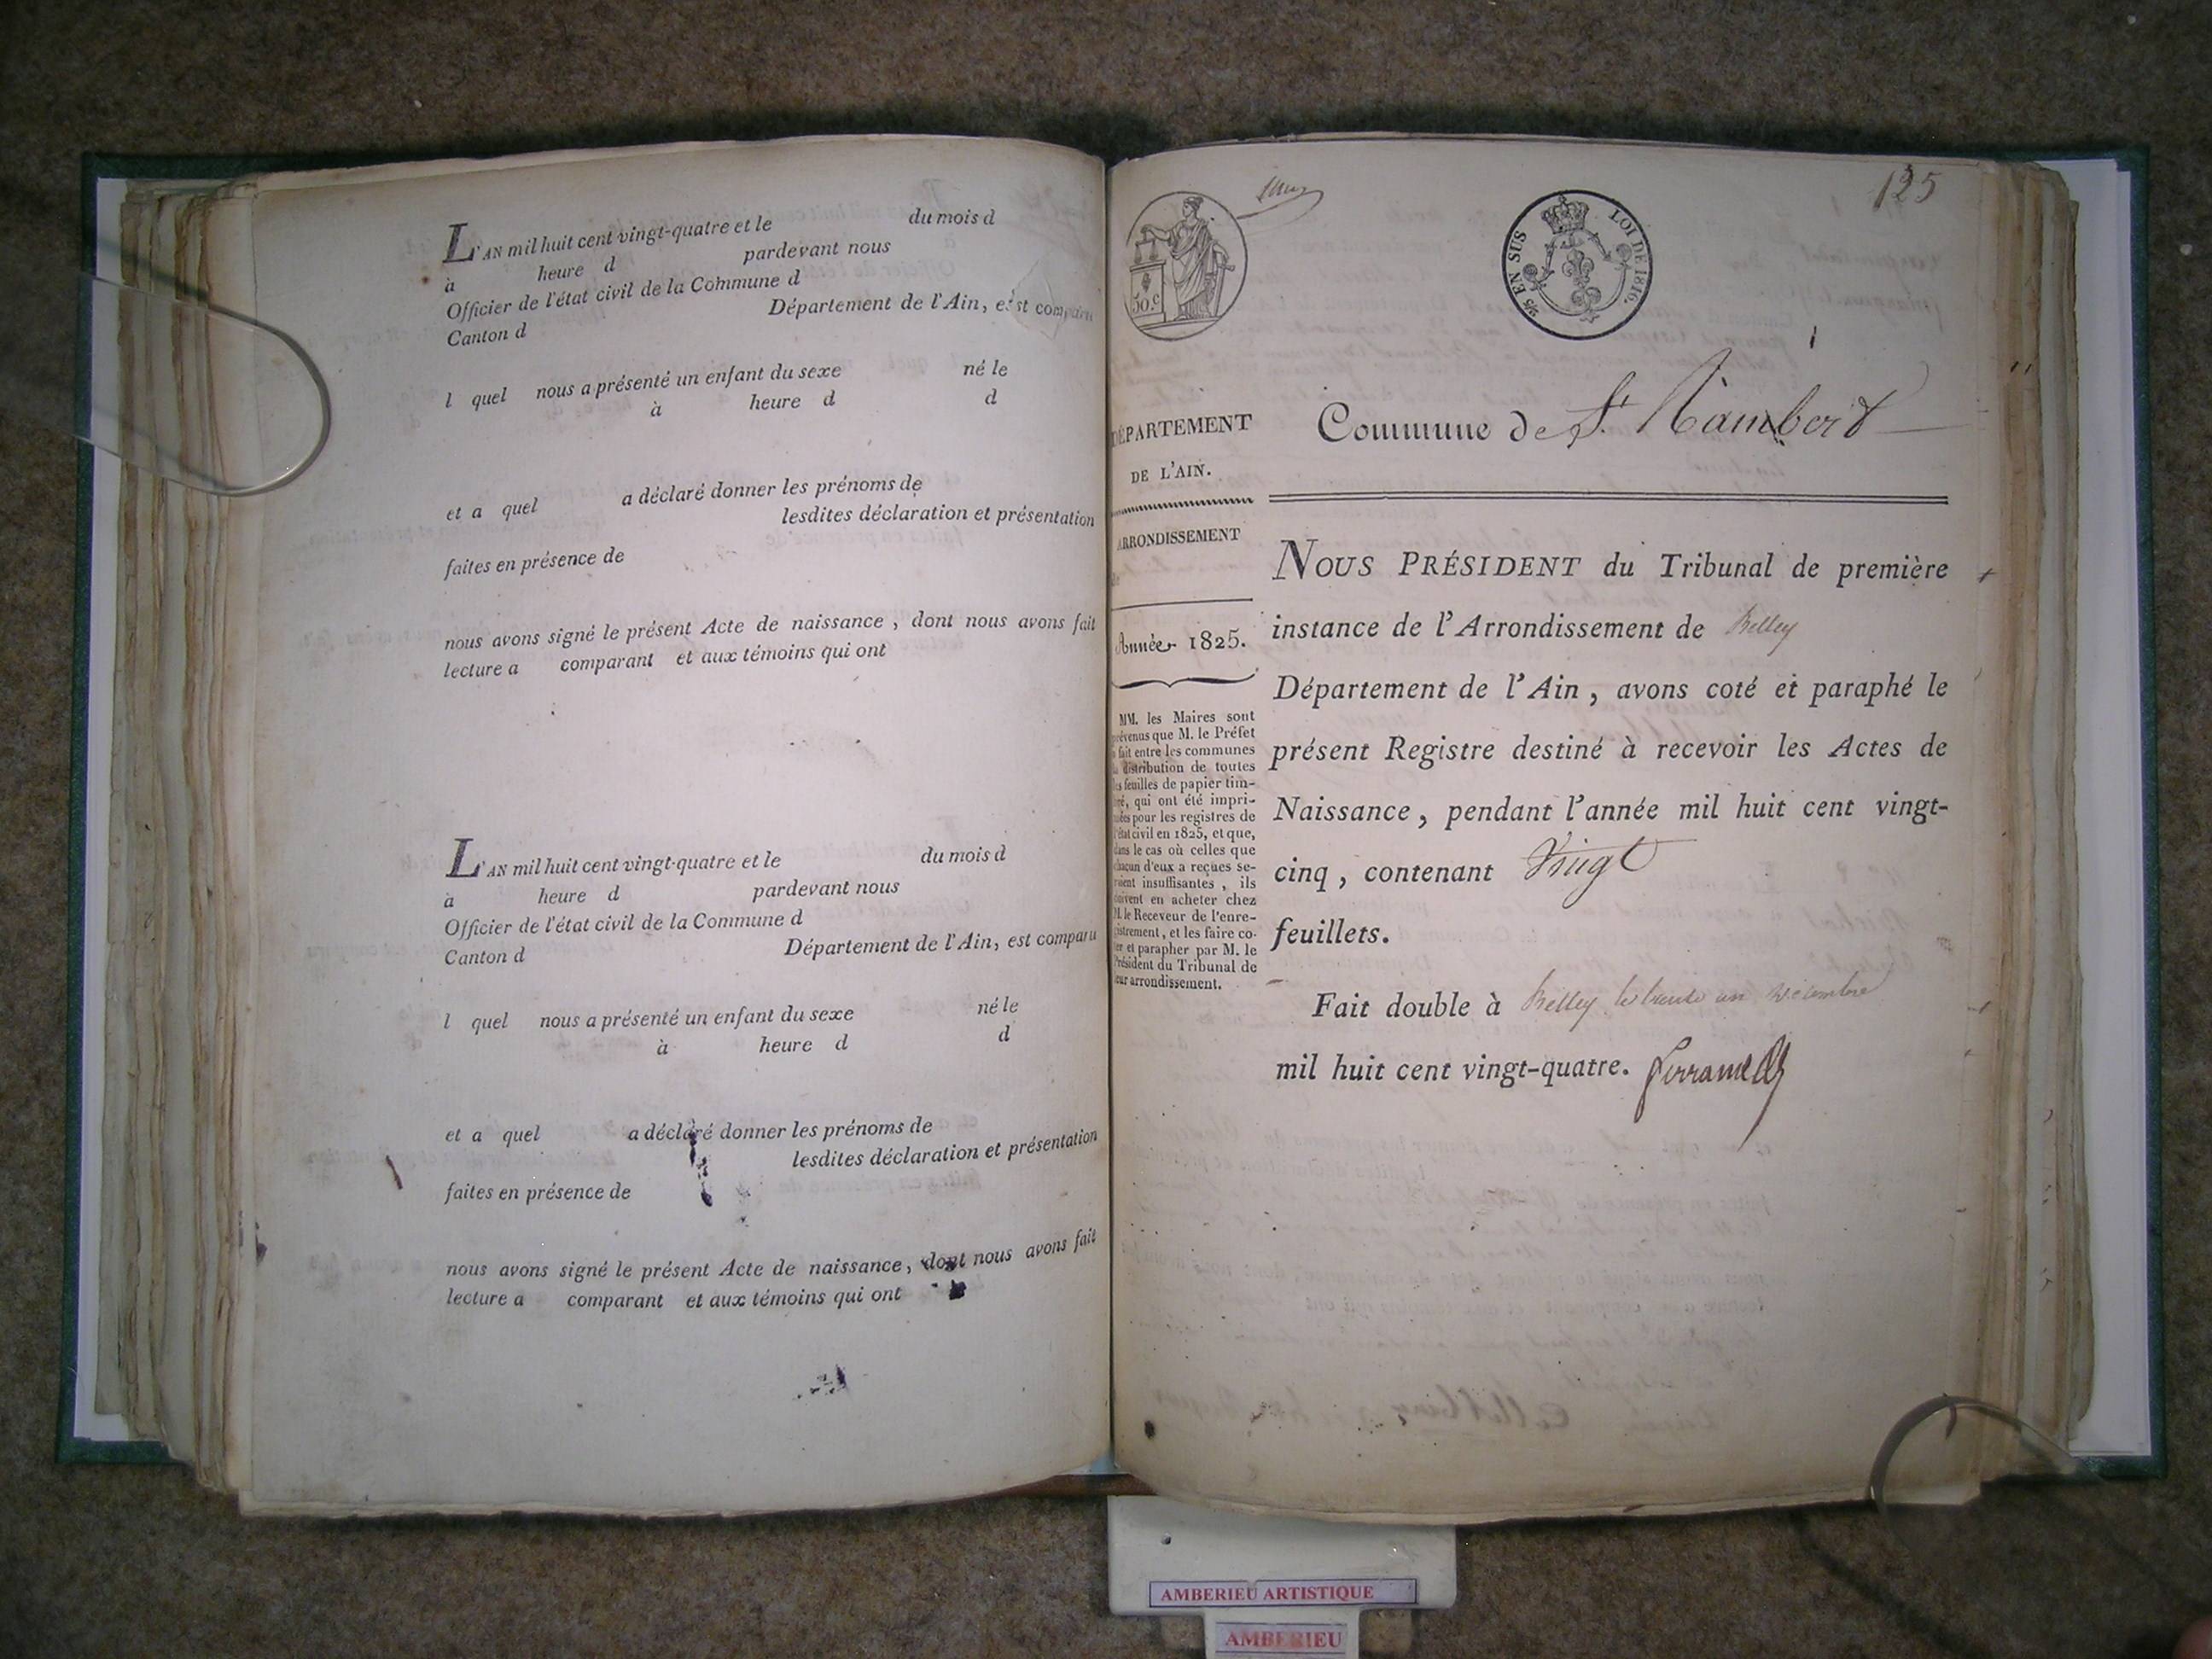 L'AN mil huit cent vingt-quatre et le du mois d
à heure d pardevant nous
Officier de l'état civil de la Commune d
Canton d Département de l'Ain, est comparu
l quel nous a présenté un enfant du sexe né le
à heure d d
et a quel a déclaré donner les prénoms de
lesdites déclaration et présentation
faites en présence de
nous avons signé le présent Acte de naissance, dont nous avons fait
lecture a comparant et aux témoins qui ont
L'AN mil huit cent vingt-quatre et le du mois d
à heure d pardevant nous
Officier de l'état civil de la Commune d
Canton d Département de l'Ain, est comparu
l quel nous a présenté un enfant du sexe né le
à heure d d
et a quel a déclaré donner les prénoms de
lesdites déclaration et présentation
faites en présence de
nous avons signé le présent Acte de naissance, dont nous avons fait
lecture a comparant et aux témoins qui ont
125
50.c
EN SUS LOI DE 1816.
1
DÉPARTEMENT
DE L'AIN.
ARRONDISSEMENT
Année 1825.
MM. les Maires sont
prévenus que M. le Préfet
a fait entre les communes
la distribution de toutes
les feuilles de papier tim-
bré, qui ont été impri-
mées pour les registres de
l'état civil en 1825, et que,
dans le cas où celles que
chacun d'eux a reçues se-
raient insuffisantes, ils
doivent en acheter chez
M. le Receveur de l'enre-
gistrement, et les faire co-
ter et parapher par M. le
Président du Tribunal de
leur arrondissement.
Commune de St. Rambert
NOUS PRÉSIDENT du Tribunal de première
instance de l'Arrondissement de Belley
Département de l'Ain, avons coté et paraphé le
présent Registre destiné à recevoir les Actes de
Naissance, pendant l'année mil huit cent vingt-
cinq, contenant Vingt
feuillets.
Fait double à Belley le trente un Décembre
mil huit cent vingt-quatre.
AMBERIEU ARTISTIQUE
AMBERIEU